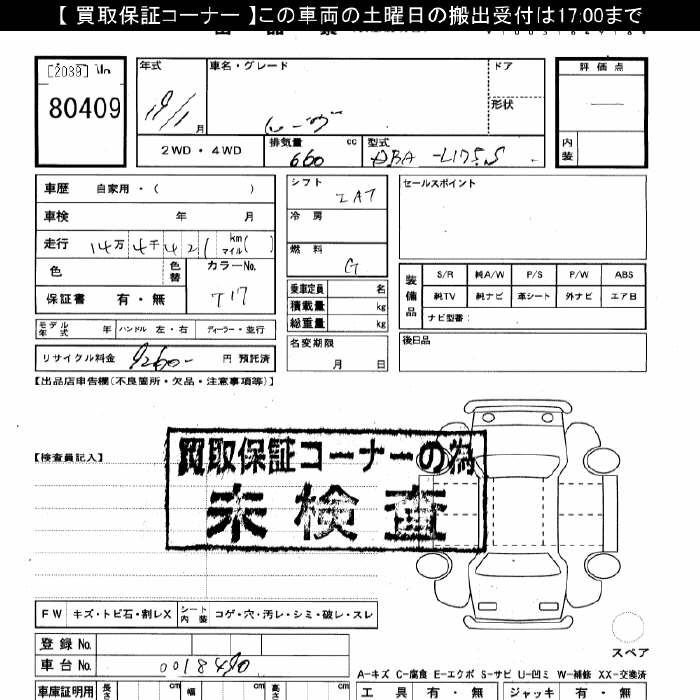 【 買取保証コーナー 】この車両の土曜日の搬出受付は17:00まで
[2039]
80409
年式
月
車名・グレード
ドア
形状
2WD・4WD
排気量 660 cc
型式 DBA-L175S
評価点
内装
車歴 自家用・( )
車検 年 月
走行 14万4千421 km マイル( )
色
色替
カラーNo.
T17
保証書 有・無
モデル年式 年 ハンドル 左・右 ディーラー・並行
リサイクル料金 9260- 円 預託済
シフト
IAT
冷房
燃料
G
乗車定員 名
積載量 kg
総重量 kg
名変期限
月 日
セールスポイント
装備品
S/R 純A/W P/S P/W ABS
純TV 純ナビ 革シート 外ナビ エアB
ナビ型番:
後日品
【出品店申告欄(不良箇所・欠品・注意事項等)】
【検査員記入】
買取保証コーナーの為
未検査
FW キズ・トビ石・割レX シート内装 コゲ・穴・汚レ・シミ・破レ・スレ
スペア
登録No.
車台No. 0018490
A-キズ C-腐食 E-エクボ S-サビ U-凹ミ W-補修 XX-交換済
車庫証明用 長さ cm 幅 cm 高さ cm
工具 有・無 ジャッキ 有・無